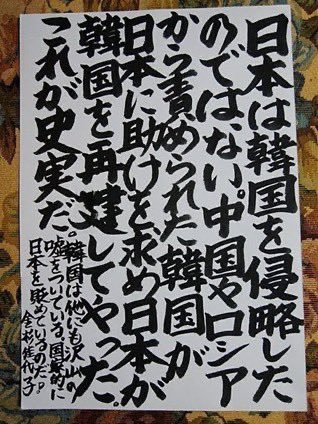 日本は韓国を侵略した
のではない。中国やロシア
から責められた韓国が
日本に助けを求め日本が
韓国を再建してやった。
これが史実だ。
韓国は他にも沢山の
嘘をついている。国家的に
日本を貶めているのだ。